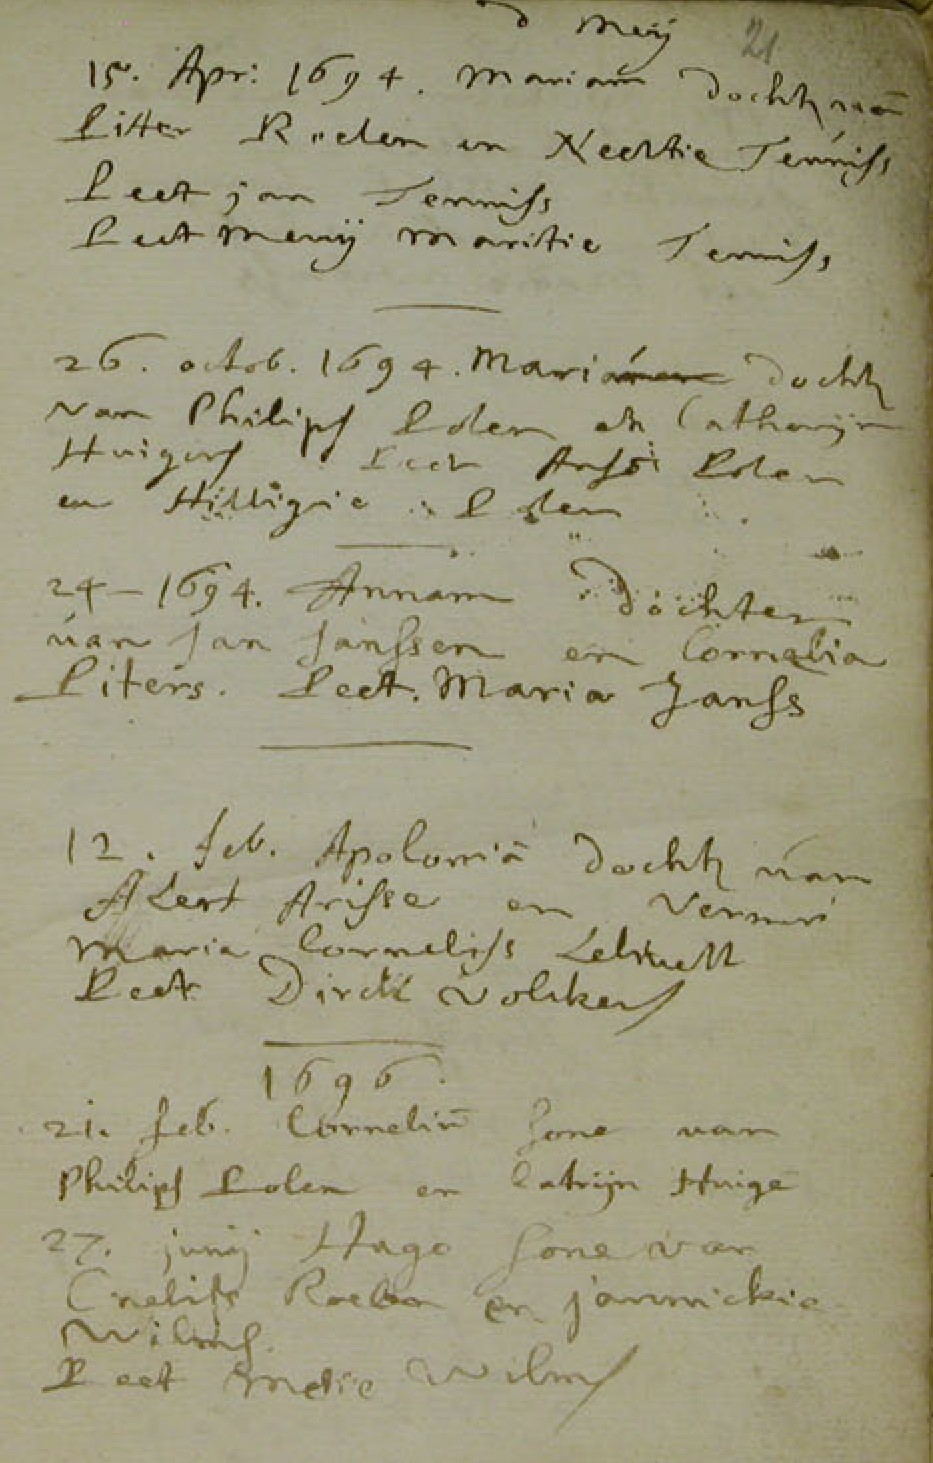 D Meij
21
15. Apr: 1694. Mariam dochtr van
Pitter Roelen en Neeltie Tenniss
Peet jan Tenniss
Peet Meuij Maritie Tenniss
26. octob. 1694. Mariam dochtr
van Philips Polen en Catharijn
Huigens Peet Polen
en Hilligie Polen
24 - 1694. Annam dochter
van Jan Janssen en Cornelia
Piters. Peet. Maria Janss
12. feb. Apolonia dochtr van
Alert Arisse en
Maria Corneliss
Peet Dirck Volckers
1696.
21. feb. Corneliu̅ Sone van
Philips Polen en Catrijn Huige
27. junij Hugo Sone van
Cneliss Roelen en jannickie
Wilms.
Peet Metie Wilms